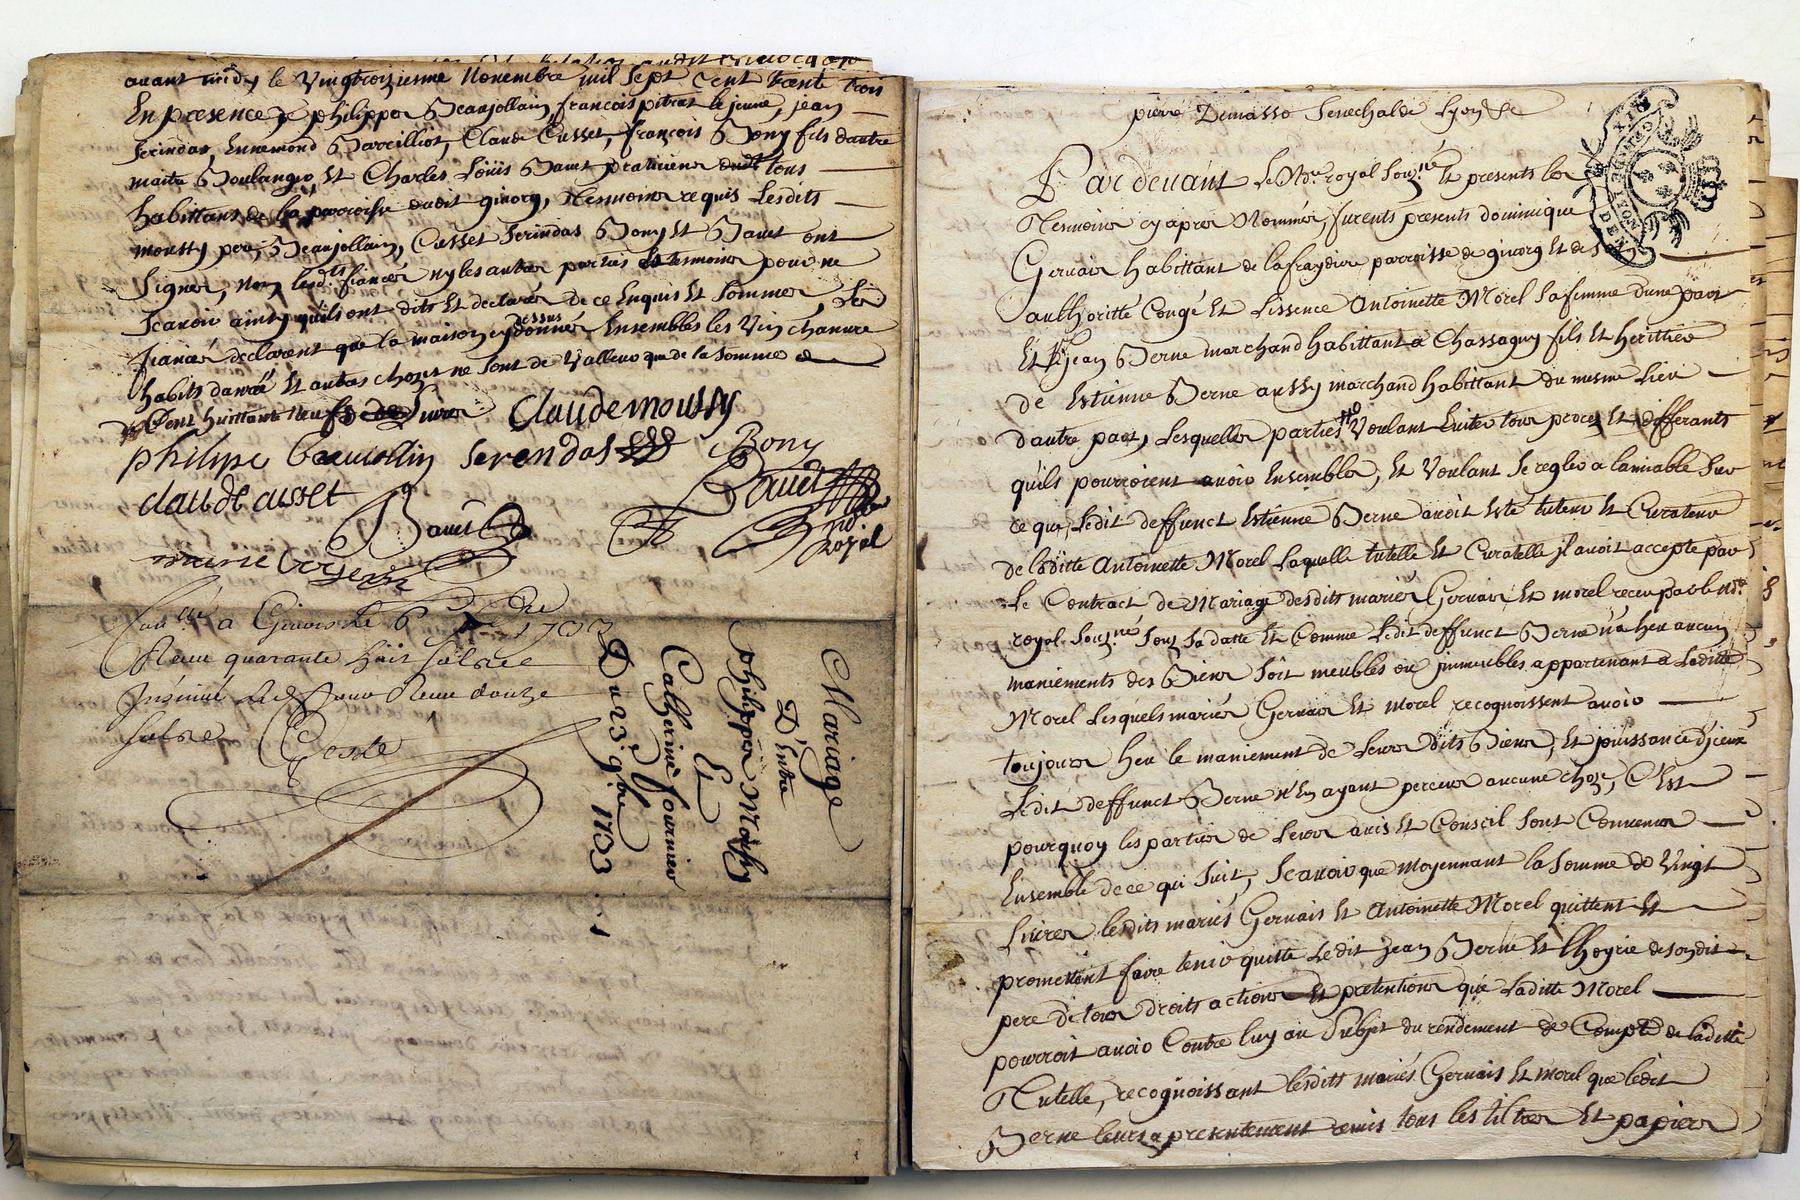 avant midy le Vingtroizieme Novembre mil Sept Cent trente trois
En presence de philippe Beaujollain, francois pitrat le jeune, jean
Serindas, Ennemond Barcilliot, Claude Cusset, françois Bony fils dautre
maitre Boulanger Et Charles Loüis Bauet praticiens tous
habittants de la parroisse dudit givorg, Tesmoins requis Lesdits
moussy pere, Beaujollain, Cusset Serindas Bony Et Bauet ont
Signer, Non lesd.ts fiancés ny les autres parties Et tesmoins pour ne
Scavoir ainsy quils ont dits Et declarés de ce Enquis Et Sommes, Les
fiancés declarent que la maison cy dessus donnés Ensembles les Vin chanvre
habits danrée Et autres chozes ne Sont de Valleur que de la Somme de
Cent huittante neuf Livres
Claudemoussy
philipe baujollin serendas Bony
claude cusset
Bauet
Bauet
no.re royal
Con.llé a Givors le 6 Xbre 1733
Receu quarante huit Sols
Insinué Led. jour Receu douze
Sols
Coste
Mariage
D'Entre
philippe Moussy
Et
Catherine fournier
Du 23.e 9bre 1733
pierre Demasso Senechal de Lyon
GENERALITE DE LYON
Par devant Le No.re royal Sous.né Et presents les
Tesmoins cy apres Nommés, furents presents dominique
Gervais habittant de la fraydiere parroisse de givorg Et de S
authoritté Congé Et Lissence Antoinette Morel Sa femme dune part
Et S.r jean Berne marchand habittant a Chassagny fils Et heritier
de Estienne Berne aussy marchand habittant du mesme Lieu
dautre part, Lesquelles parties Voulant Eviter tous proces Et differants
quils pourroient avoir Ensembles, Et Voulant Se regler a lamiable Sur
ce que Ledit deffunct Estienne Berne avoit Esté tuteur Et Curateur
de laditte Antoinette Morel Laquelle tutelle Et Curatelle Jl avoit accepté par
Le Contract de Mariage desdits mariés Gervais Et morel receu par le No.re
royal Sous.né Sous Sa datte Et Comme Ledit deffunct Berne n'a heu aucun
maniements des Biens Soit meubles ou jmmeubles appartenant a Laditte
Morel Lesquels mariés Gervais Et morel recognoissent avoir
toujours heu le maniement de Leurs dits Biens, Et jouissance d'jceux
Ledit deffunct Berne n'En ayant perceus aucune choze, C'Est
pourquoy les parties de Leurs avis Et Conseil Sont Convenus
Ensemble de ce qui Suit, Scavoir que moyennant la Somme de Vingt
Livres lesdits mariés Gervais Et Antoinette Morel quittent Et
promettent faire tenir quitte Ledit jean Berne Et Lhoyrie de Son dit
pere de tous droits actions Et pretentions que Laditte Morel
pourroit avoir Contre luy au Subjet du rendement de Compte de laditte
Tutelle, recognoissant lesdits mariés Gervais Et morel que ledit
Berne leurs a presentement remis tous les tiltres Et papiers